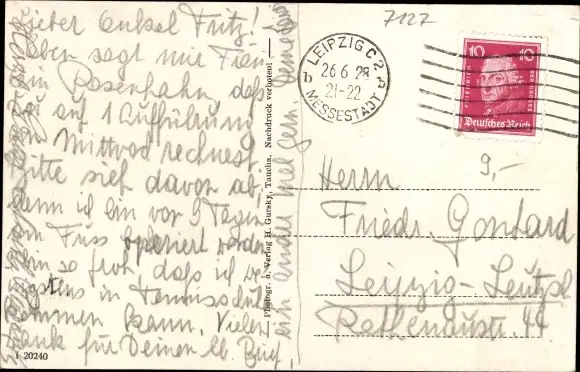 Lieber Onkel Fritz!
Eben sagt mir Frau
Rosenhahn, daß
Du auf 1 Aufführung
am Mittwoch rechnest.
Bitte sieh davon ab,
denn ich bin vor 9 Tagen
am Fuss operiert worden
bin so froh, daß ich we-
nigstens in Tennisschuh
kommen kann. Vielen
Dank für Deinen lb. Brief,
ein ander mal gern.
I 20240
Photogr. u. Verlag H. Gursky, Taucha. Nachdruck verboten!
7127
LEIPZIG C 2
b
26.6.28
21-22
b
MESSESTADT
10 10
Deutsches Reich
9,-
Herrn
Friedr. Gontard
Leipzig-Leutzsch
Rathenaustr. 44